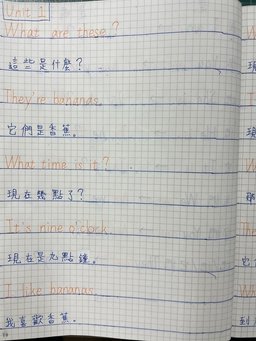 Unit 1
What are these?
這些是什麼？
They're bananas.
它們是香蕉。
What time is it?
現在幾點了？
It's nine o'clock.
現在是九點鐘。
I like bananas.
我喜歡香蕉。